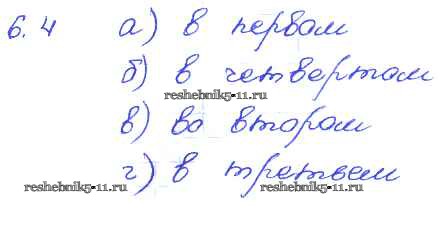 6.4 а) в первом
б) в четвертом
reshebnik5-11.ru
в) во втором
г) в третьем
reshebnik5-11.ru reshebnik5-11.ru